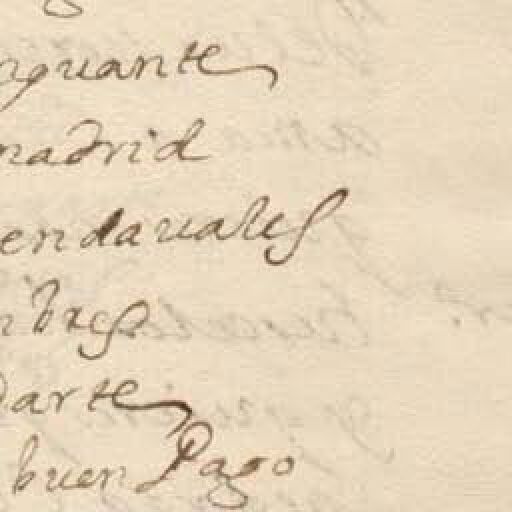 nguante
madrid
endauales
nbres
darte
buen Pago